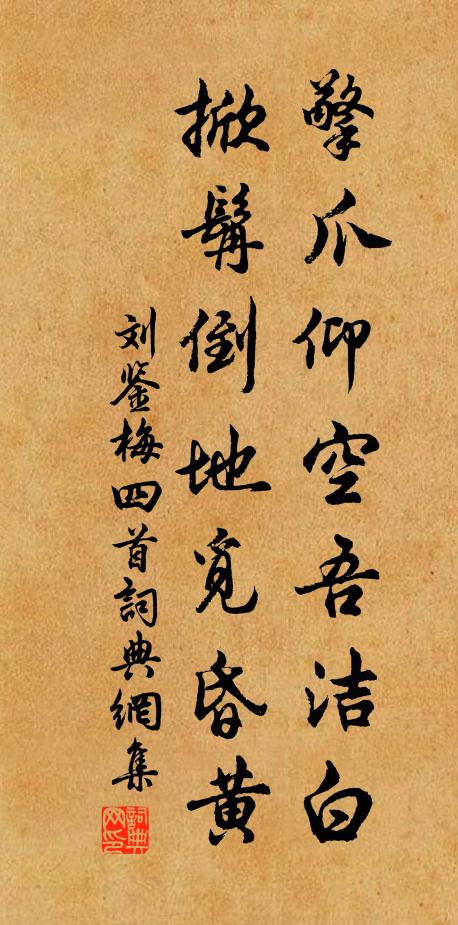 擎爪仰空吾洁白
掀髯倒地觅昏黄
刘鉴梅四首詞典網集
詞典网印